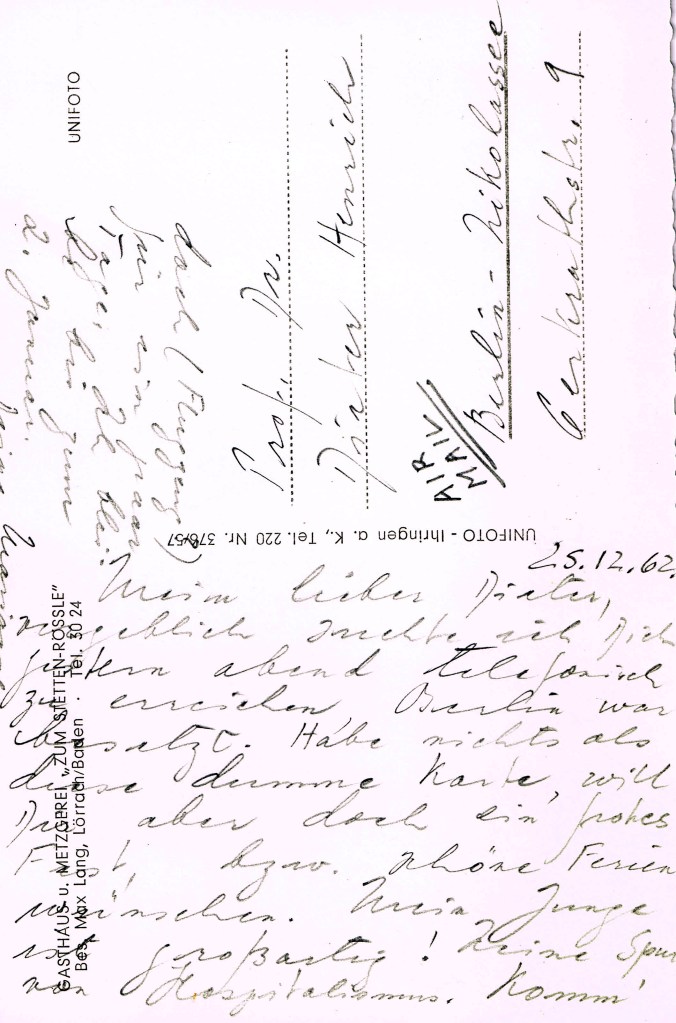 25.12.62.
Mein lieber Dieter,
vergeblich suchte ich Dich
gestern abend telefonisch
zu erreichen Berlin war
besetzt. Habe nichts als
diese dumme Karte, will
Dir aber doch ein frohes
Fest, bzw. schöne Ferien
wünschen. Mein Junge
ist großartig! Keine Spur
von Hospitalismus. Komm'
doch (Flugzeug)
für ein paar
Tage.
bis zum
2. Januar.
UNIFOTO
Prof. Dr.
Dieter Henrich
AIR
MAIL
Berlin - Nikolassee
Gerkrathstr. 9
UNIFOTO - Ihringen a. K., Tel. 220 Nr. 378/57
GASTHAUS u. METZGEREI „ZUM STETTEN-RÖSSLE"
Bes. Max Lang, Lörrach/Baden · Tel. 30 24